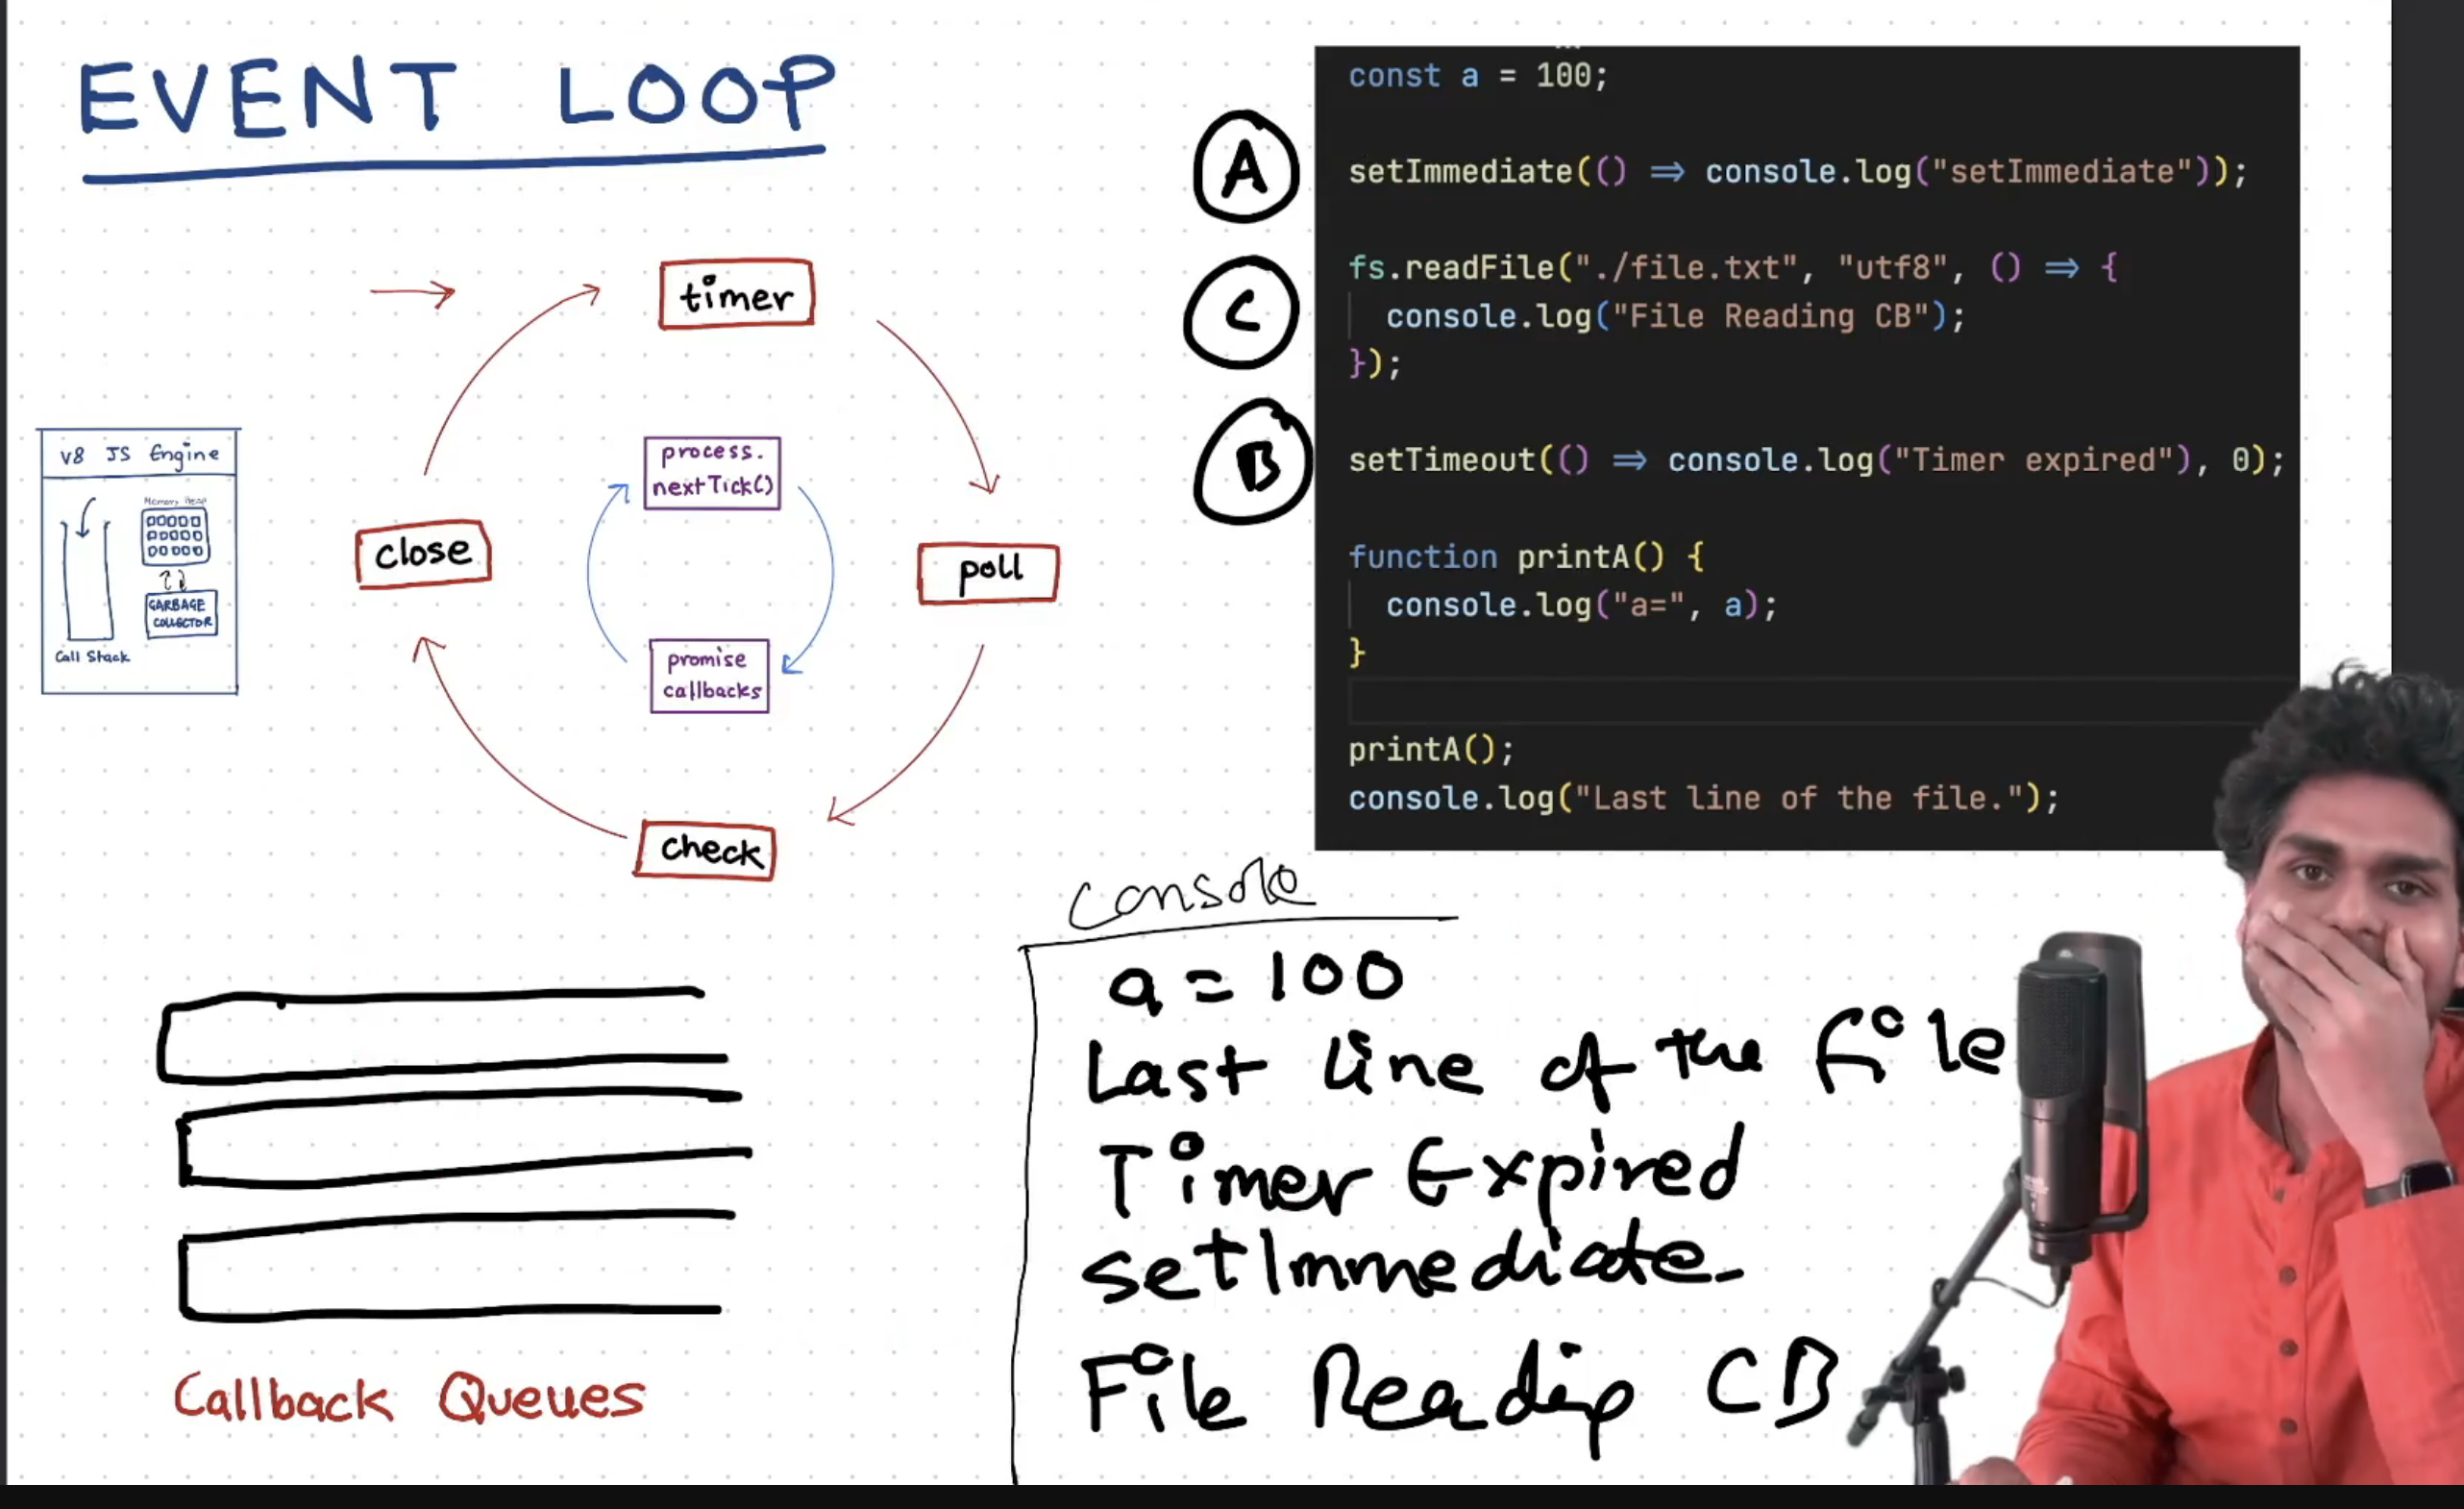 EVENT LOOP
timer
process.
nextTick()
poll
promise
callbacks
check
close
V8 JS Engine
Memory Heap
GARBAGE
COLLECTOR
Call Stack
Callback Queues
A
C
B
const a = 100;
setImmediate(() ⇒ console.log("setImmediate"));
fs.readFile("./file.txt", "utf8", () ⇒ {
console.log("File Reading CB");
});
setTimeout(() ⇒ console.log("Timer expired"), 0);
function printA() {
console.log("a=", a);
}
printA();
console.log("Last line of the file.");
Console
a = 100
Last line of the file
Timer Expired
setImmediate
File Reading CB